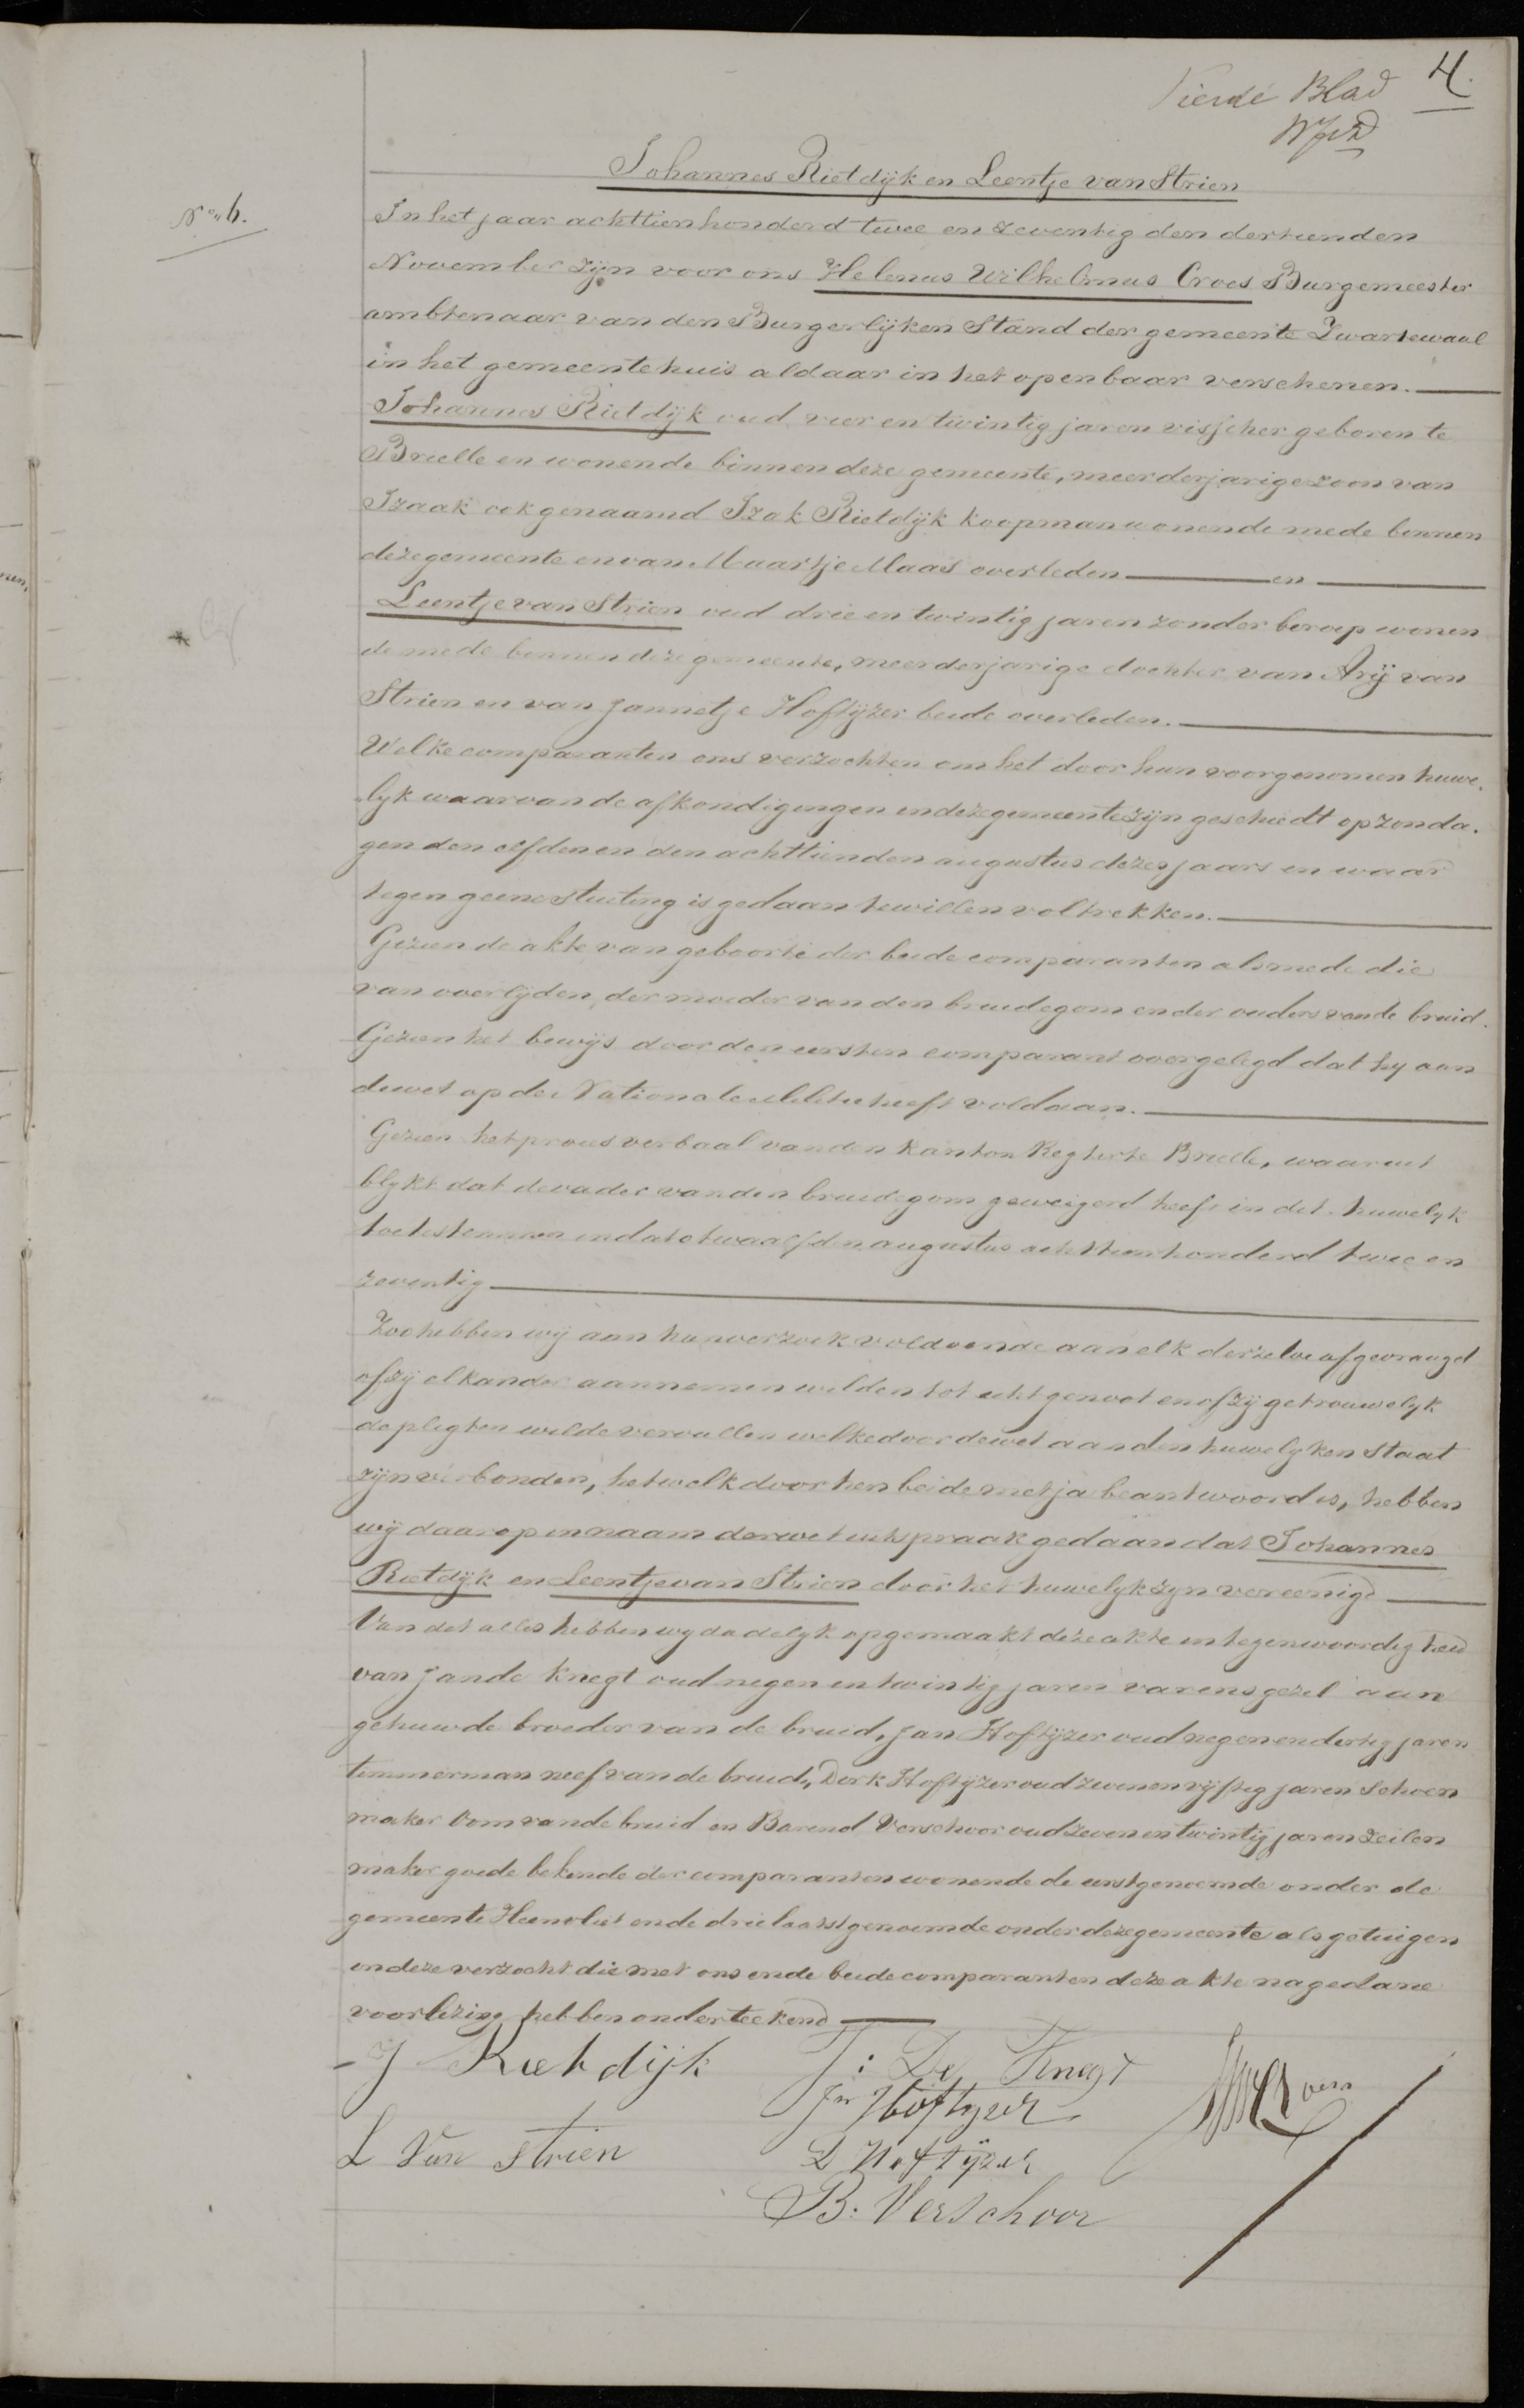 Vierde Blad 4.
Johannes Rietdijk en Leentje van Strien
N° 6.
In het jaar achttienhonderd twee en zeventig den dertienden
November zijn voor ons Helenus Wilhelmus Croes Burgemeester
ambtenaar van den Burgerlijken Stand der gemeente Zwartewaal
in het gemeentehuis aldaar in het openbaar verschenen.
Johannes Rietdijk oud vier en twintig jaren visscher geboren te
Brielle en wonende binnen deze gemeente, meerderjarige zoon van
Izaak ook genaamd Izak Rietdijk koopman wonende mede binnen
deze gemeente en van Maartje Maas overleden en
Leentje van Strien oud drie en twintig jaren zonder beroep wonen
de mede binnen deze gemeente, meerderjarige dochter van Arij van
Strien en van Jannetje Hoftijzer beide overleden.
Welke comparanten ons verzochten om het door hun voorgenomen huwe.
lijk waarvan de afkondigingen in deze gemeente zijn geschiedt op zonda.
gen den elfden en den achttienden augustus dezes jaars en waar
tegen geene stuiting is gedaan te willen voltrekken.
Gezien de akte van geboorte der beide comparanten alsmede die
van overlijden der moeder van den bruidegom en der ouders van de bruid.
Gezien het bewijs door den eersten comparant overgelegd dat hy aan
de wet op de Nationale Militie heeft voldaan.
Gezien het proces verbaal van den Kanton Regter te Brielle, waaruit
blykt dat de vader van den bruidegom geweigerd heeft in det huwelyk
toetestemmen in dato twaalfden augustus achttienhonderd twee en
zeventig
Zoo hebben wy aan hun verzoek voldoende aan elk derzelve afgevraagd
of zij elkander aannemen wilden tot echtgenoot en of zij getrouwelyk
de pligten wilde vervullen welke door de wet aan den huwelyken Staat
zijn verbonden, hetwelk door hen beide met ja beantwoord is, hebben
wij daarop in naam der wet uitspraak gedaan dat Johannes
Rietdijk en Leentje van Strien door het huwelyk zyn vereenigd
Van det alles hebben wy dadelyk opgemaakt deze akte in tegenwoordigheid
van Jan de Knegt oud negen en twintig jaren varensgezel aan
gehuwde broeder van de bruid, Jan Hoftijzer oud negen en dertig jaren
timmerman neef van de bruid, Dirk Hoftijzer oud zeven en vijftig jaren Schoen
maker Oom van de bruid en Barend Verschoor oud zeven en twintig jaren zeilen
maker goede bekende der comparanten wonende de eerstgenoemde onder de
gemeente Heenvliet en de drie laatstgenoemde onder deze gemeente als getuigen
in deze verzocht die met ons en de beide comparanten deze akte na gedane
voorlezing hebben onderteekend
J Rietdijk J: De Knegt
Jn Hoftyzer
L Van Strien D Hoftijzer
B: Verschoor